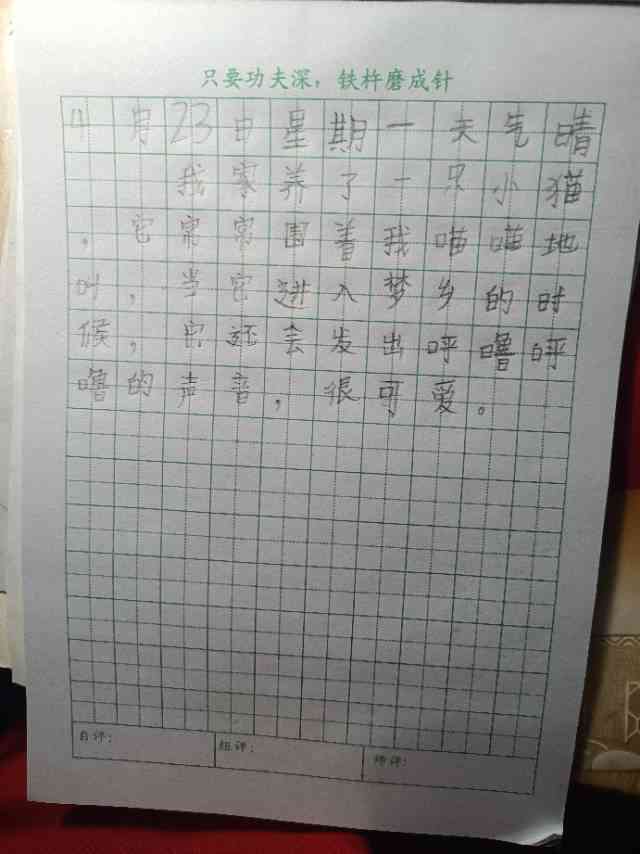 只要功夫深，铁杵磨成针
4月23日星期一天气晴
我家养了一只小猫
。它常常围着我喵喵地
叫，当它进入梦乡的时
候，它还会发出呼噜呼
噜的声音，很可爱。
自评：
组评：
师评：